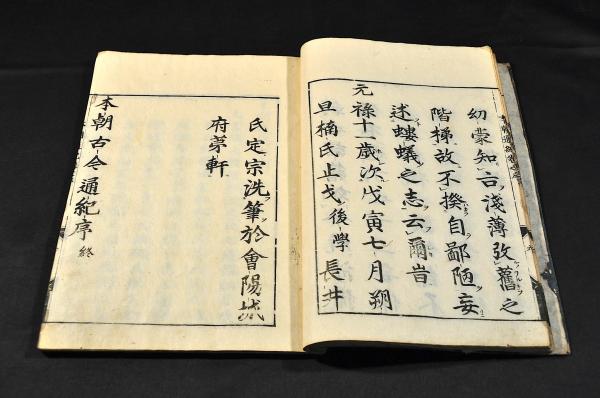 幼蒙知言淺薄攷舊之
階梯故不揆自鄙陋妄
述螻蟻之志云爾昔
元祿十一歳次戊寅七月朔
旦楠氏止戈後學長井
氏定宗洗筆於會陽城
府第軒
本朝古今通紀序終